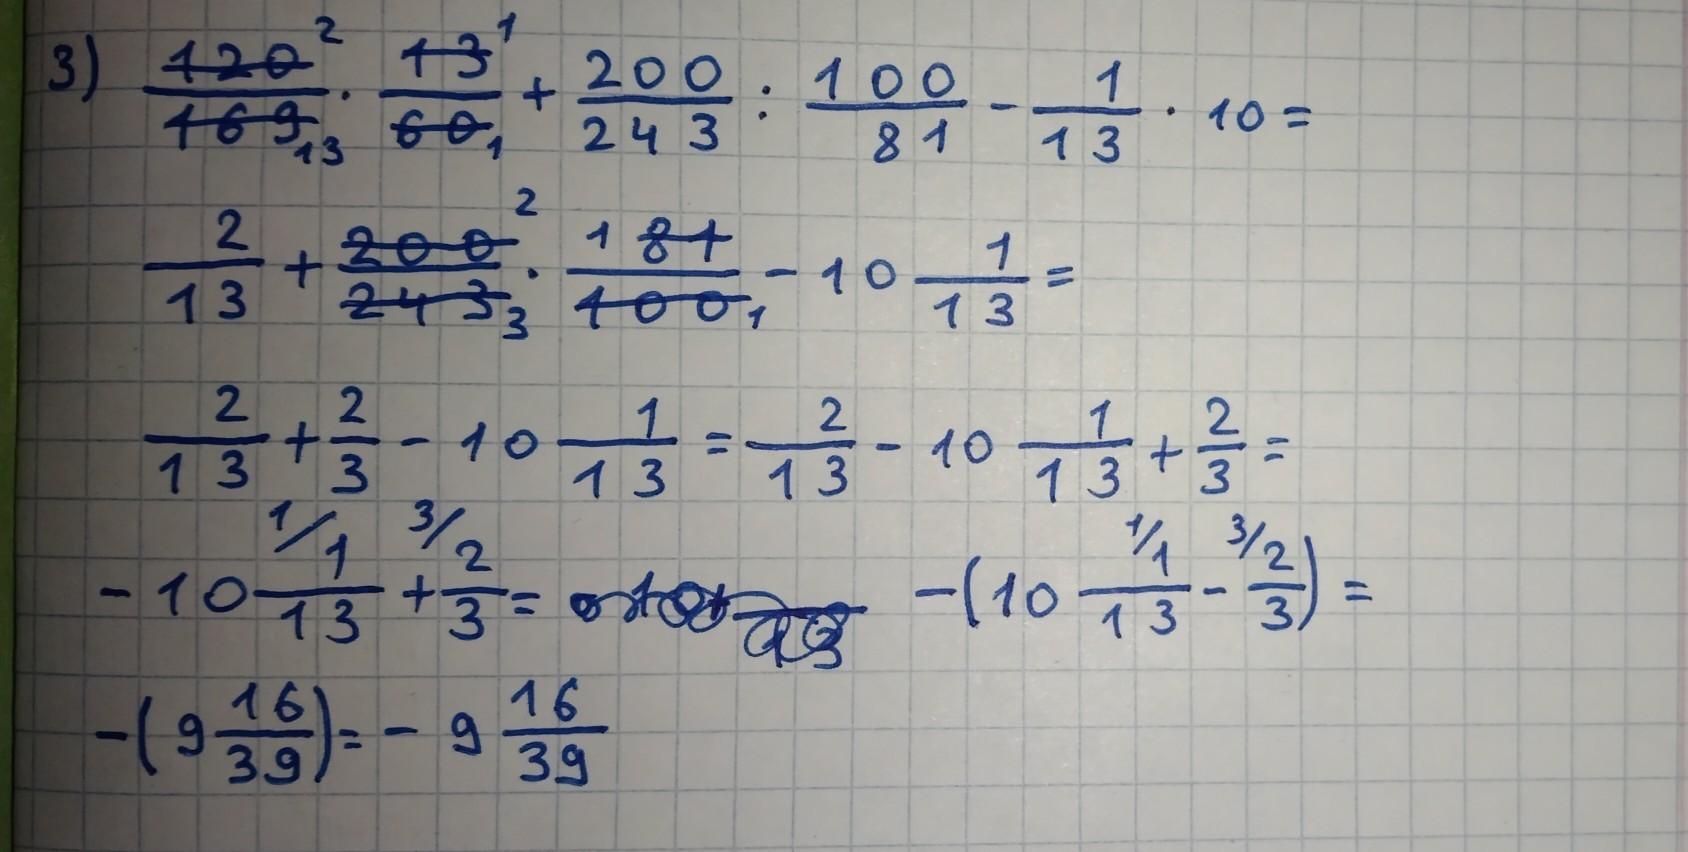 3) 120²/169₁₃ · 13¹/60₁ + 200/243 : 100/81 - 1/13 · 10 =
2/13 + 200²/243₃ · ¹81/100₁ - 10 1/13 =
2/13 + 2/3 - 10 1/13 = 2/13 - 10 1/13 + 2/3 =
- 10 ¹/1/13 + ³/2/3 = - (10 ¹/1/13 - ³/2/3) =
- (9 16/39) = - 9 16/39